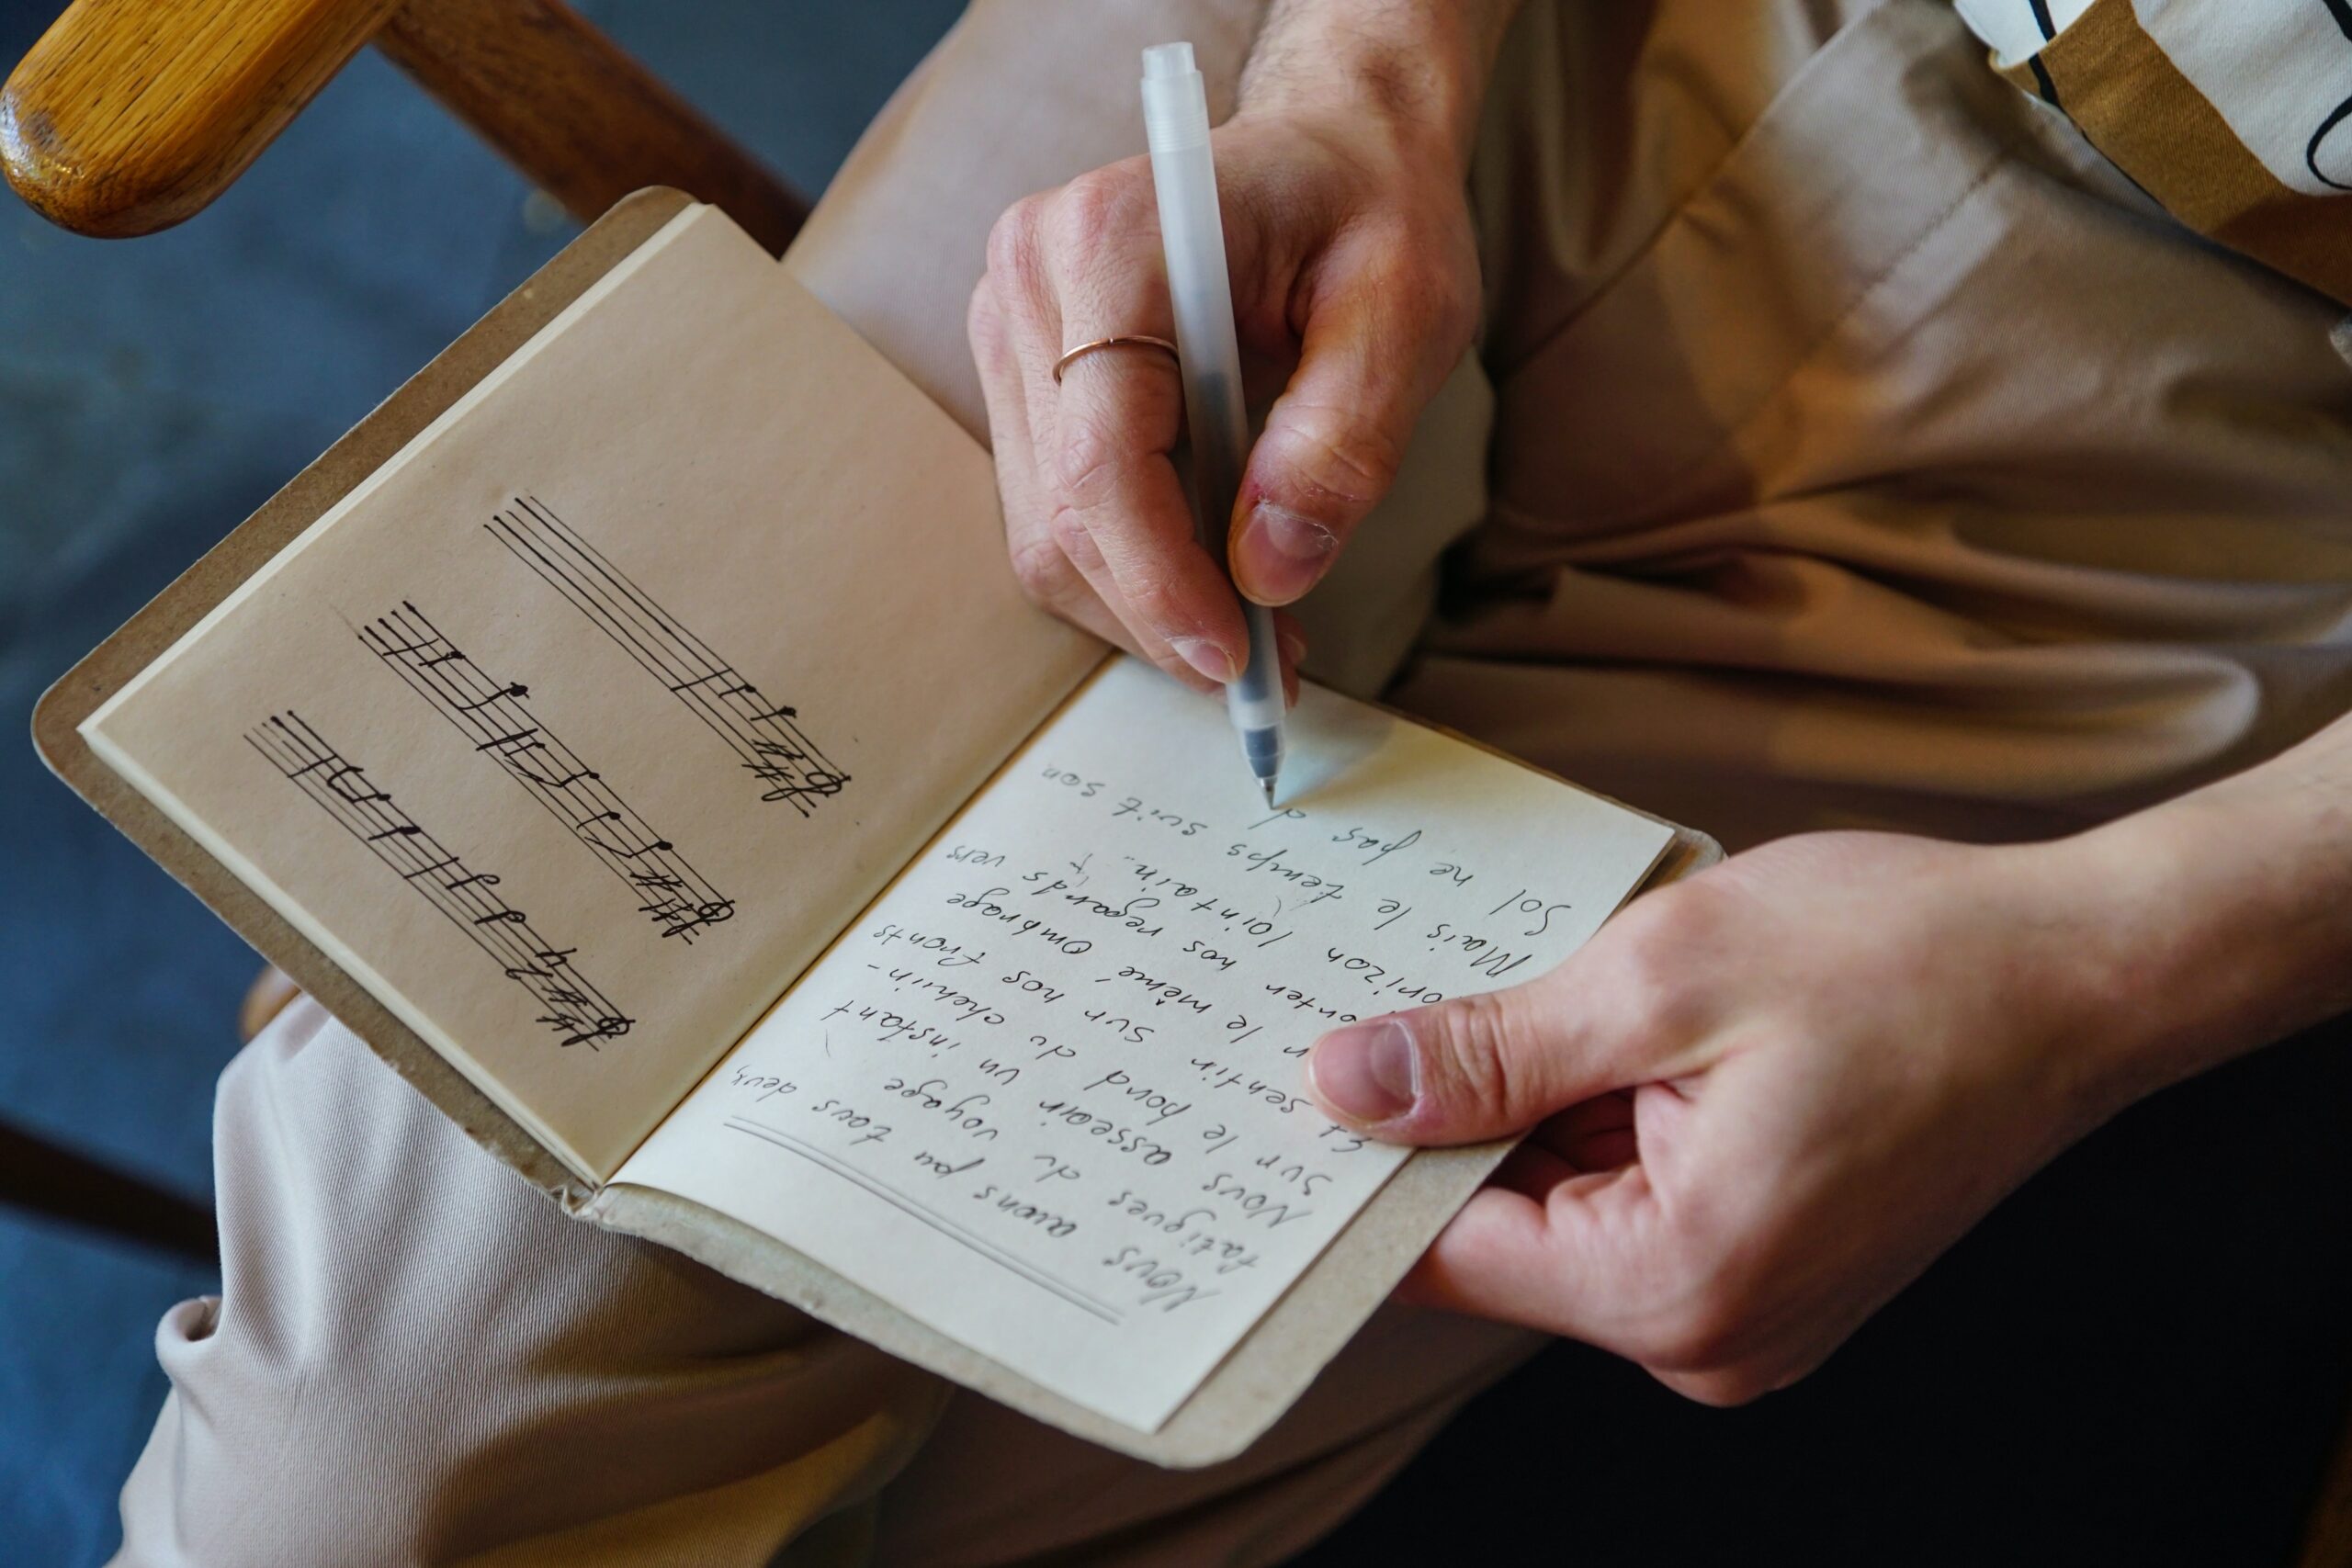 Nous avons pu tous deux,
fatigues du voyage
Nous asseoir un instant
sur le bord du chemin-
Et sentir sur nos fronts
le même Ombrage
nos regards vers
orizon lointain..
Mais le temps suit son
Sol ne pas d